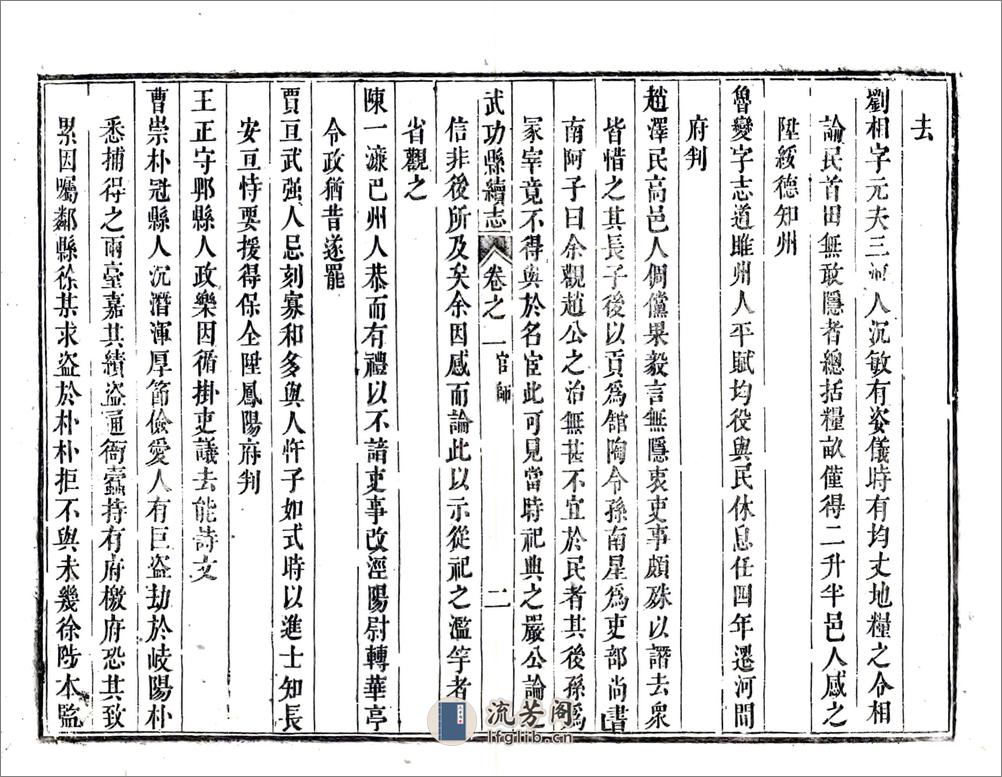 去
劉相字元夫三河人沉敏有姿儀時有均丈地糧之令相
諭民首田無敢隱者總括糧畝僅得二升半邑人感之
陞綏德知州
魯變字志道雎州人平賦均役與民休息任四年遷河間
府判
趙澤民高邑人倜儻果毅言無隱衷吏事頗殊以譖去衆
皆惜之其長子後以貢爲舘陶令孫南星爲吏部尚書
南阿子曰余觀趙公之治無甚不宜於民者其後孫爲
冢宰竟不得與於名宦此可見當時祀典之嚴公論之
信非後所及矣余因感而論此以示從祀之濫竽者
武功縣續志 卷之二 官師 二
省觀之
陳一濂巴州人恭而有禮以不諳吏事改涇陽尉轉華亭
令政猶昔遂罷
賈亘武强人忌刻寡和多與人忤子如式時以進士知長
安亘恃要援得保全陞鳳陽府判
王正守鄆縣人政樂因循掛吏議去能詩文
曹崇朴冠縣人沉潛渾厚節儉愛人有巨盜劫於岐陽朴
悉捕得之兩臺嘉其績盜通衙蠹持有府檄府恐其致
累因囑鄰縣徐某求盜於朴朴拒不與未幾徐陟本監
流芳阁
lfglib.cn